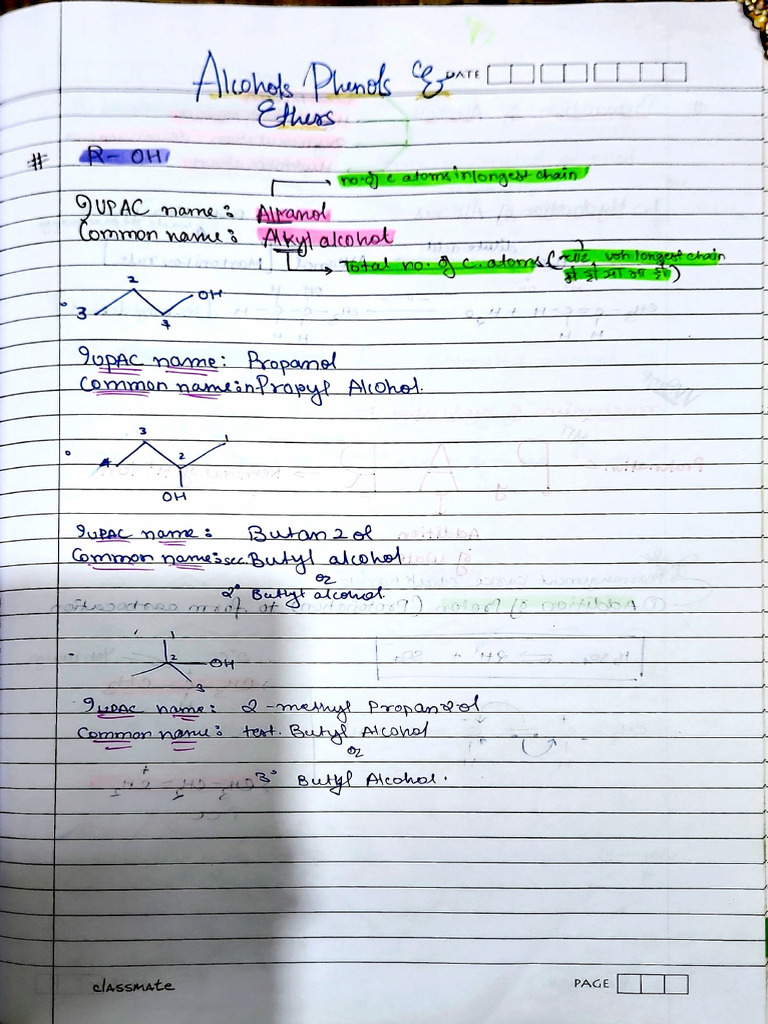 Alcohols Phenols &
DATE
Ethers
# R-OH
no. of c atoms in longest chain
IUPAC name : Alkanol
Common name : Alkyl alcohol
Total no. of c. atoms ( voh longest chain
हो हो या ना हो)
2
OH
3
1
IUPAC name : Propanol
Common name : n Propyl Alcohol.
3
1
4
2
OH
IUPAC name : Butan 2 ol
Common name : sec. Butyl alcohol
or
2° Butyl alcohol.
1
2
OH
3
IUPAC name : 2-methyl Propan 2 ol
Common name : tert. Butyl Alcohol
or
3° Butyl Alcohol.
classmate
PAGE